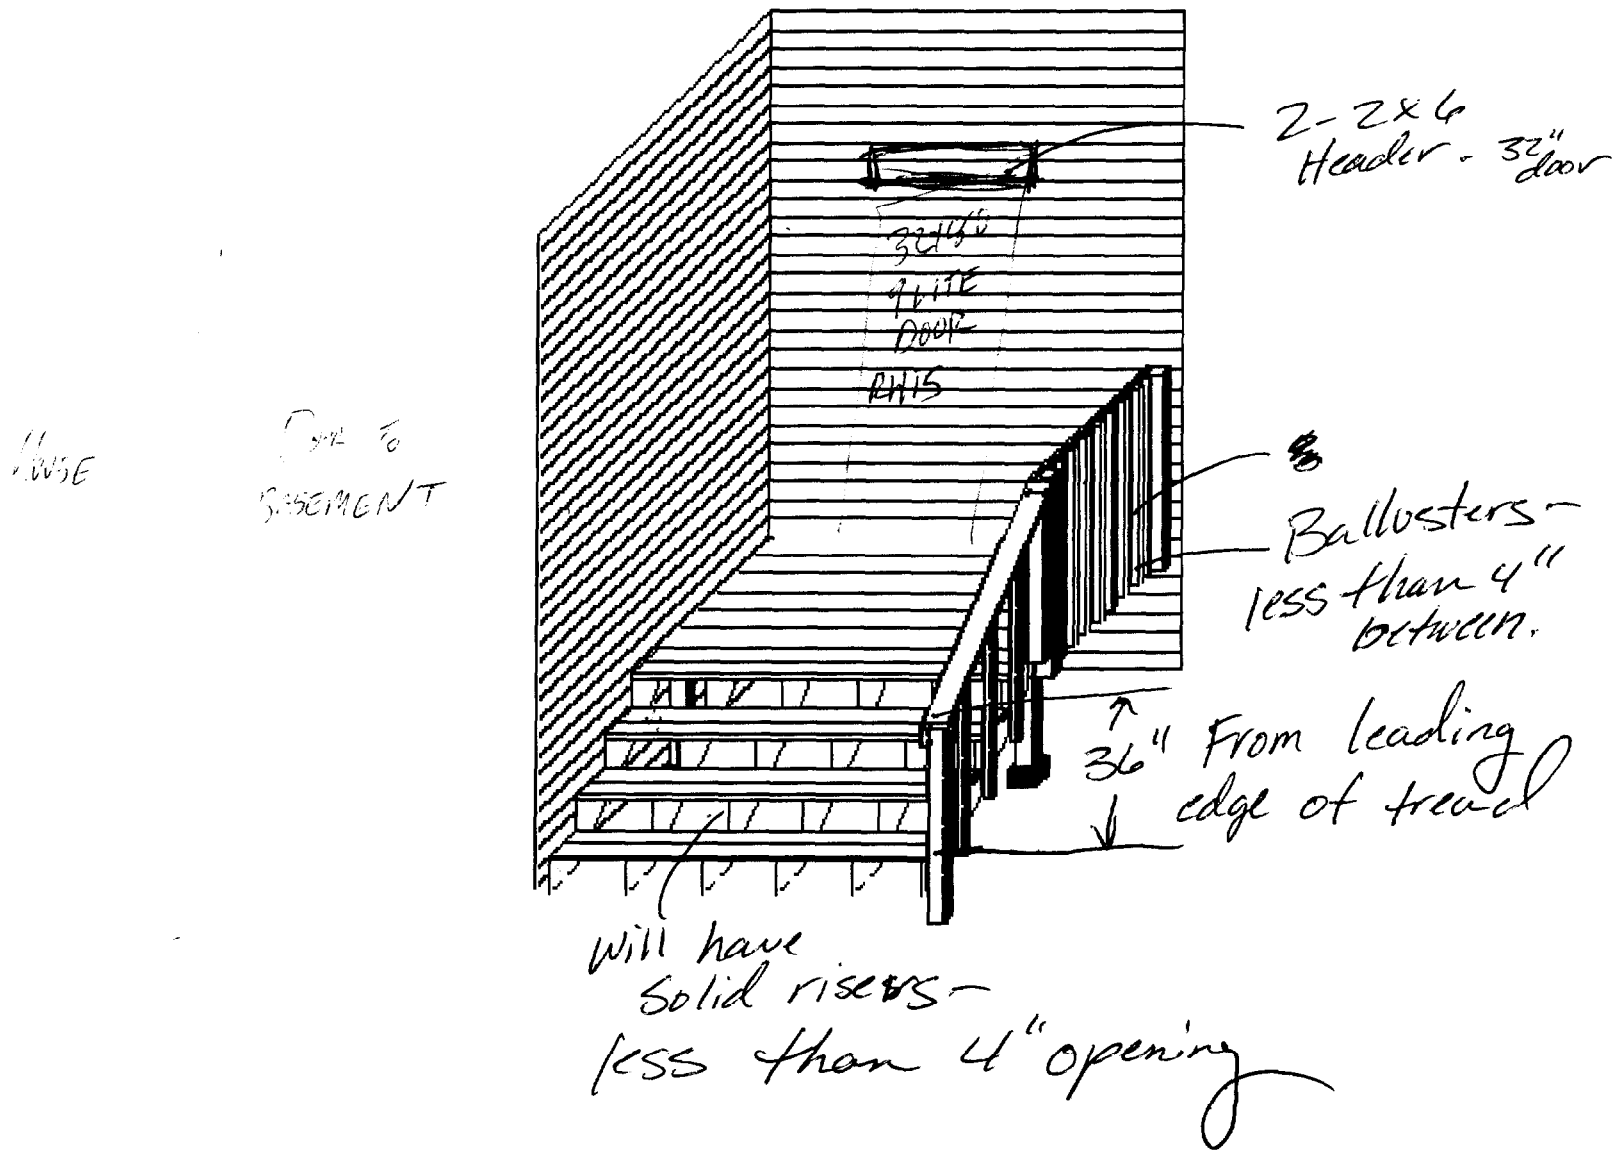 2-2x6
Header. 32"
door
9 LITE
DOOR
RHIS
HOUSE
DOOR TO
BASEMENT
Ballusters-
less than 4"
between.
36" From leading
edge of tread
Will have
solid risers-
less than 4" opening